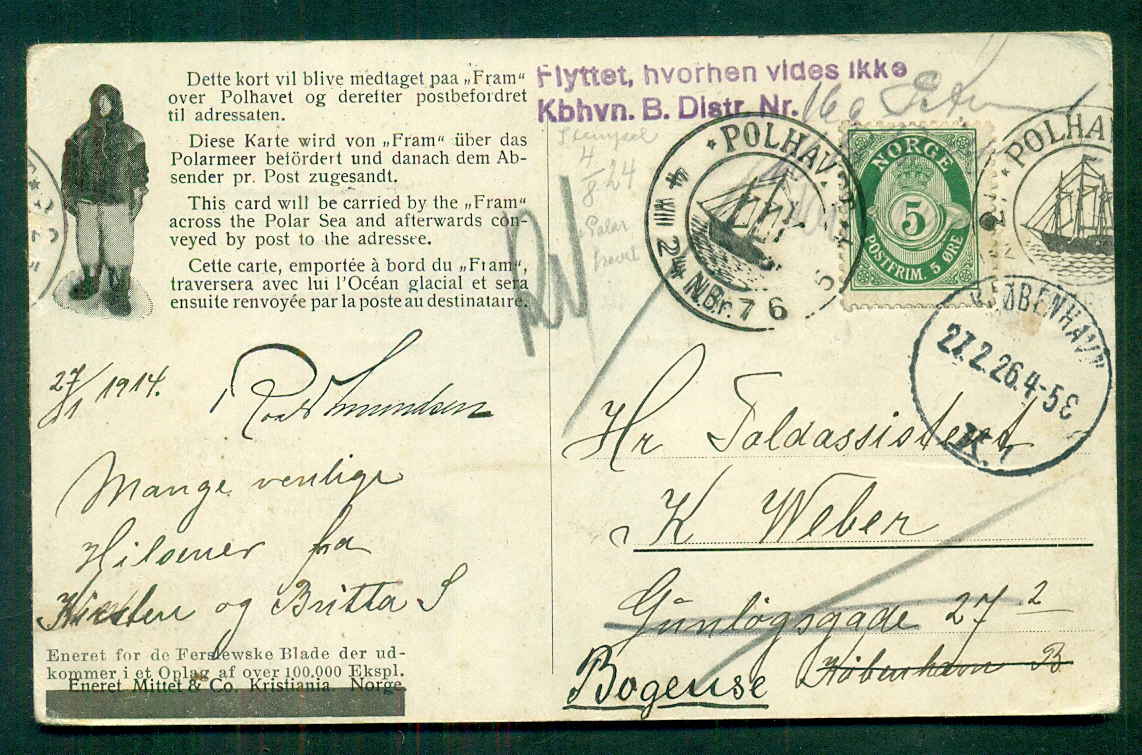 Dette kort vil blive medtaget paa „Fram“
over Polhavet og derefter postbefordret
til adressaten.
Diese Karte wird von „Fram“ über das
Polarmeer befördert und danach dem Ab-
sender pr. Post zugesandt.
This card will be carried by the „Fram“
across the Polar Sea and afterwards con-
veyed by post to the adressee.
Cette carte, emportée à bord du „Fram“,
traversera avec lui l'Océan glacial et sera
ensuite renvoyée par la poste au destinataire.
27/1 1914.
Roald Amundsen
Mange venlige
Hilsener fra
Kirsten og Britta S
Eneret for de Ferslewske Blade der ud-
kommer i et Oplag af over 100.000 Ekspl.
Eneret Mittet & Co. Kristiania. Norge.
Flyttet, hvorhen vides ikke
Kbhvn. B. Distr. Nr. 16
Stempel
4/8 24
Polar
* POLHAVET
4 VIII 24
N.Br. 76
NORGE
5
POSTFRIM. 5 ØRE
* POLHA
KJØBENHAVN
27.2.26.4-5E
K.1
Hr Toldassistent
K Weber
Gunløgsgade 27 2
København B
Bogense